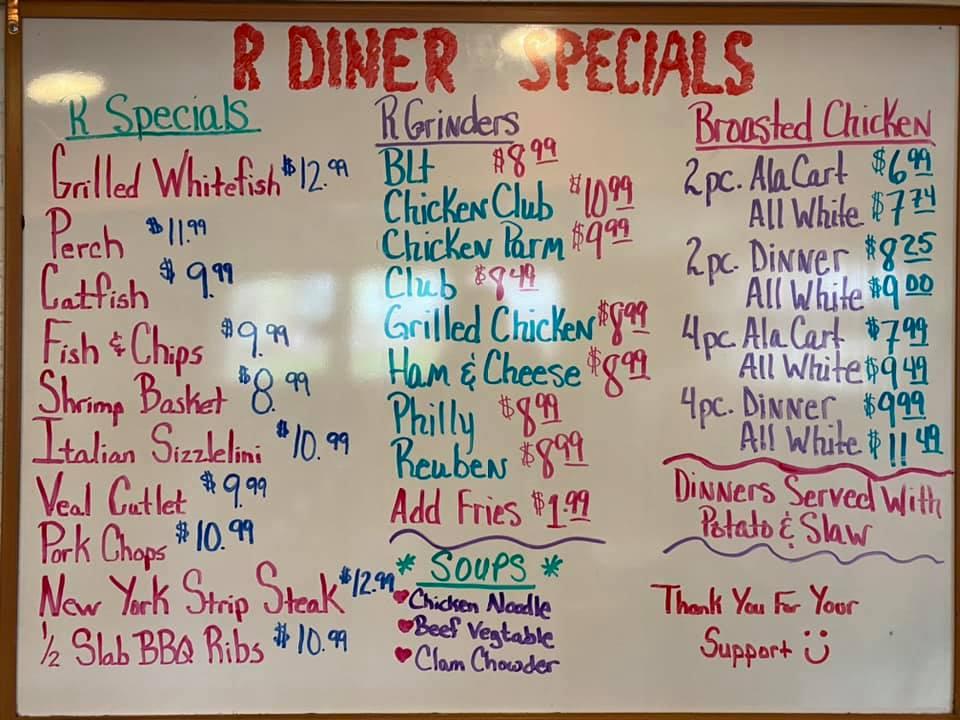 R DINER SPECIALS
R Specials
Grilled Whitefish $12.99
Perch $11.99
Catfish $9.99
Fish & Chips $9.99
Shrimp Basket $8.99
Italian Sizzlelini $10.99
Veal Cutlet $9.99
Pork Chops $10.99
New York Strip Steak $12.99
1/2 Slab BBQ Ribs $10.99
R Grinders
Blt $8.99
Chicken Club $10.99
Chicken Parm $9.99
Club $8.49
Grilled Chicken $8.99
Ham & Cheese $8.99
Philly $8.99
Reuben $8.99
Add Fries $1.99
* Soups *
Chicken Noodle
Beef Vegtable
Clam Chowder
Broasted Chicken
2pc. Ala Cart $6.99
All White $7.74
2pc. Dinner $8.25
All White $9.00
4pc. Ala Cart $7.99
All White $9.49
4pc. Dinner $9.99
All White $11.49
Dinners Served With
Potato & Slaw
Thank You For Your
Support